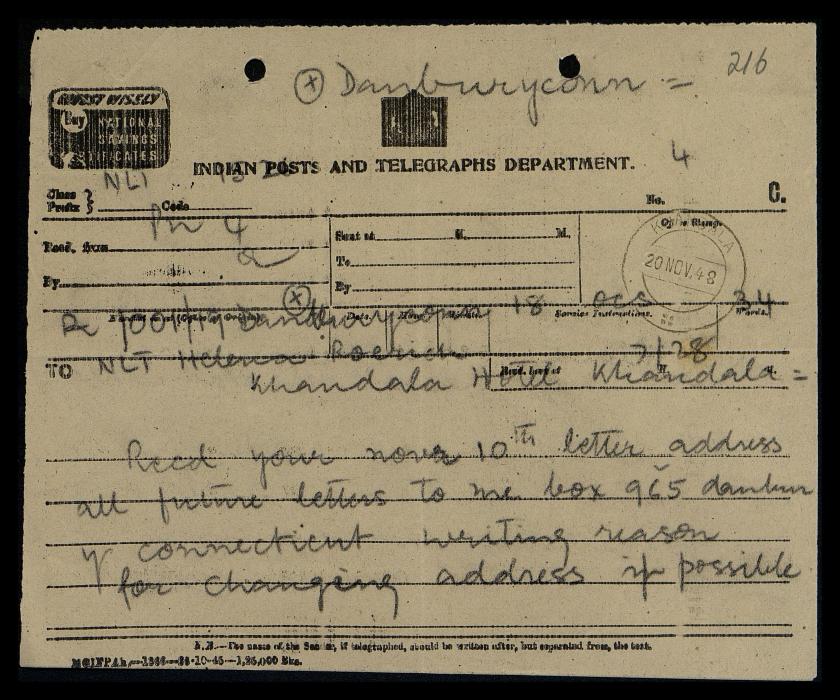 216
Danburyconn =
INVEST WISELY
Buy NATIONAL
SAVINGS
INDIAN POSTS AND TELEGRAPHS DEPARTMENT.
4
NLT 15 20
Class
Prefix } Code
No.
C.
Office Stamp
4
Recd. from
Sent at H. M.
To
By
By
KHANDALA
20 NOV. 48
Danburyconn 18 OCS 34
Service Instructions. Words.
TO NLT Helena Roerich
Khandala Hotel Khandala =
Recd your nover 10th letter address
all future letters to me box 965 danbur
y connecticut writing reason
for changing address if possible
N.B.—The name of the Sender, if telegraphed, should be written after, but separated from, the text.